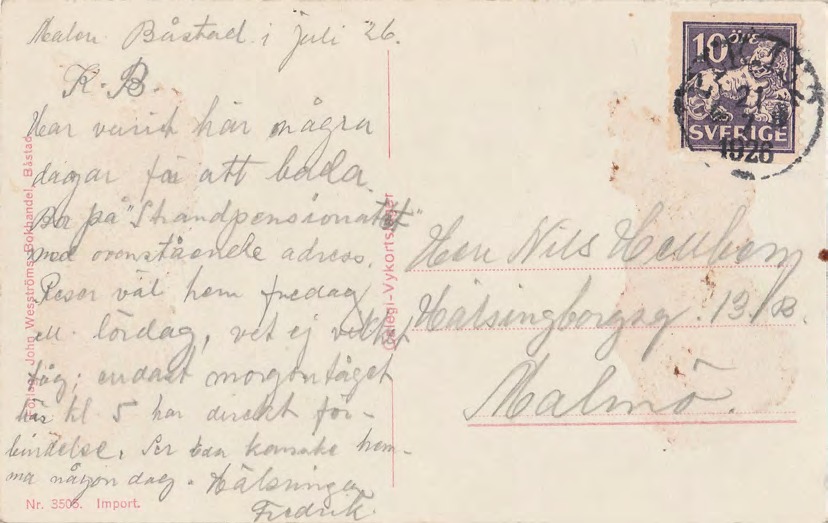 Malen Båstad i juli 26.
K. B.
Har varit här några
dagar för att bada.
Bor på "Strandpensionatet"
med ovanstående adress.
Reser väl hem fredag
ell. lördag, vet ej vilket
tåg; endast morgontåget
här kl 5 har direkt för-
bindelse. Ser Eder kanske hem-
ma någon dag. Hälsningar
Fredrik.
Nr. 3505. Import.
Förlag: John Wesströms Bokhandel, Båstad
Collegi-Vykortsaffär
10 ÖRE
SVERIGE
21
7
1926
Herr Nils Hellberg
Hälsingborgsg. 13 B.
Malmö.